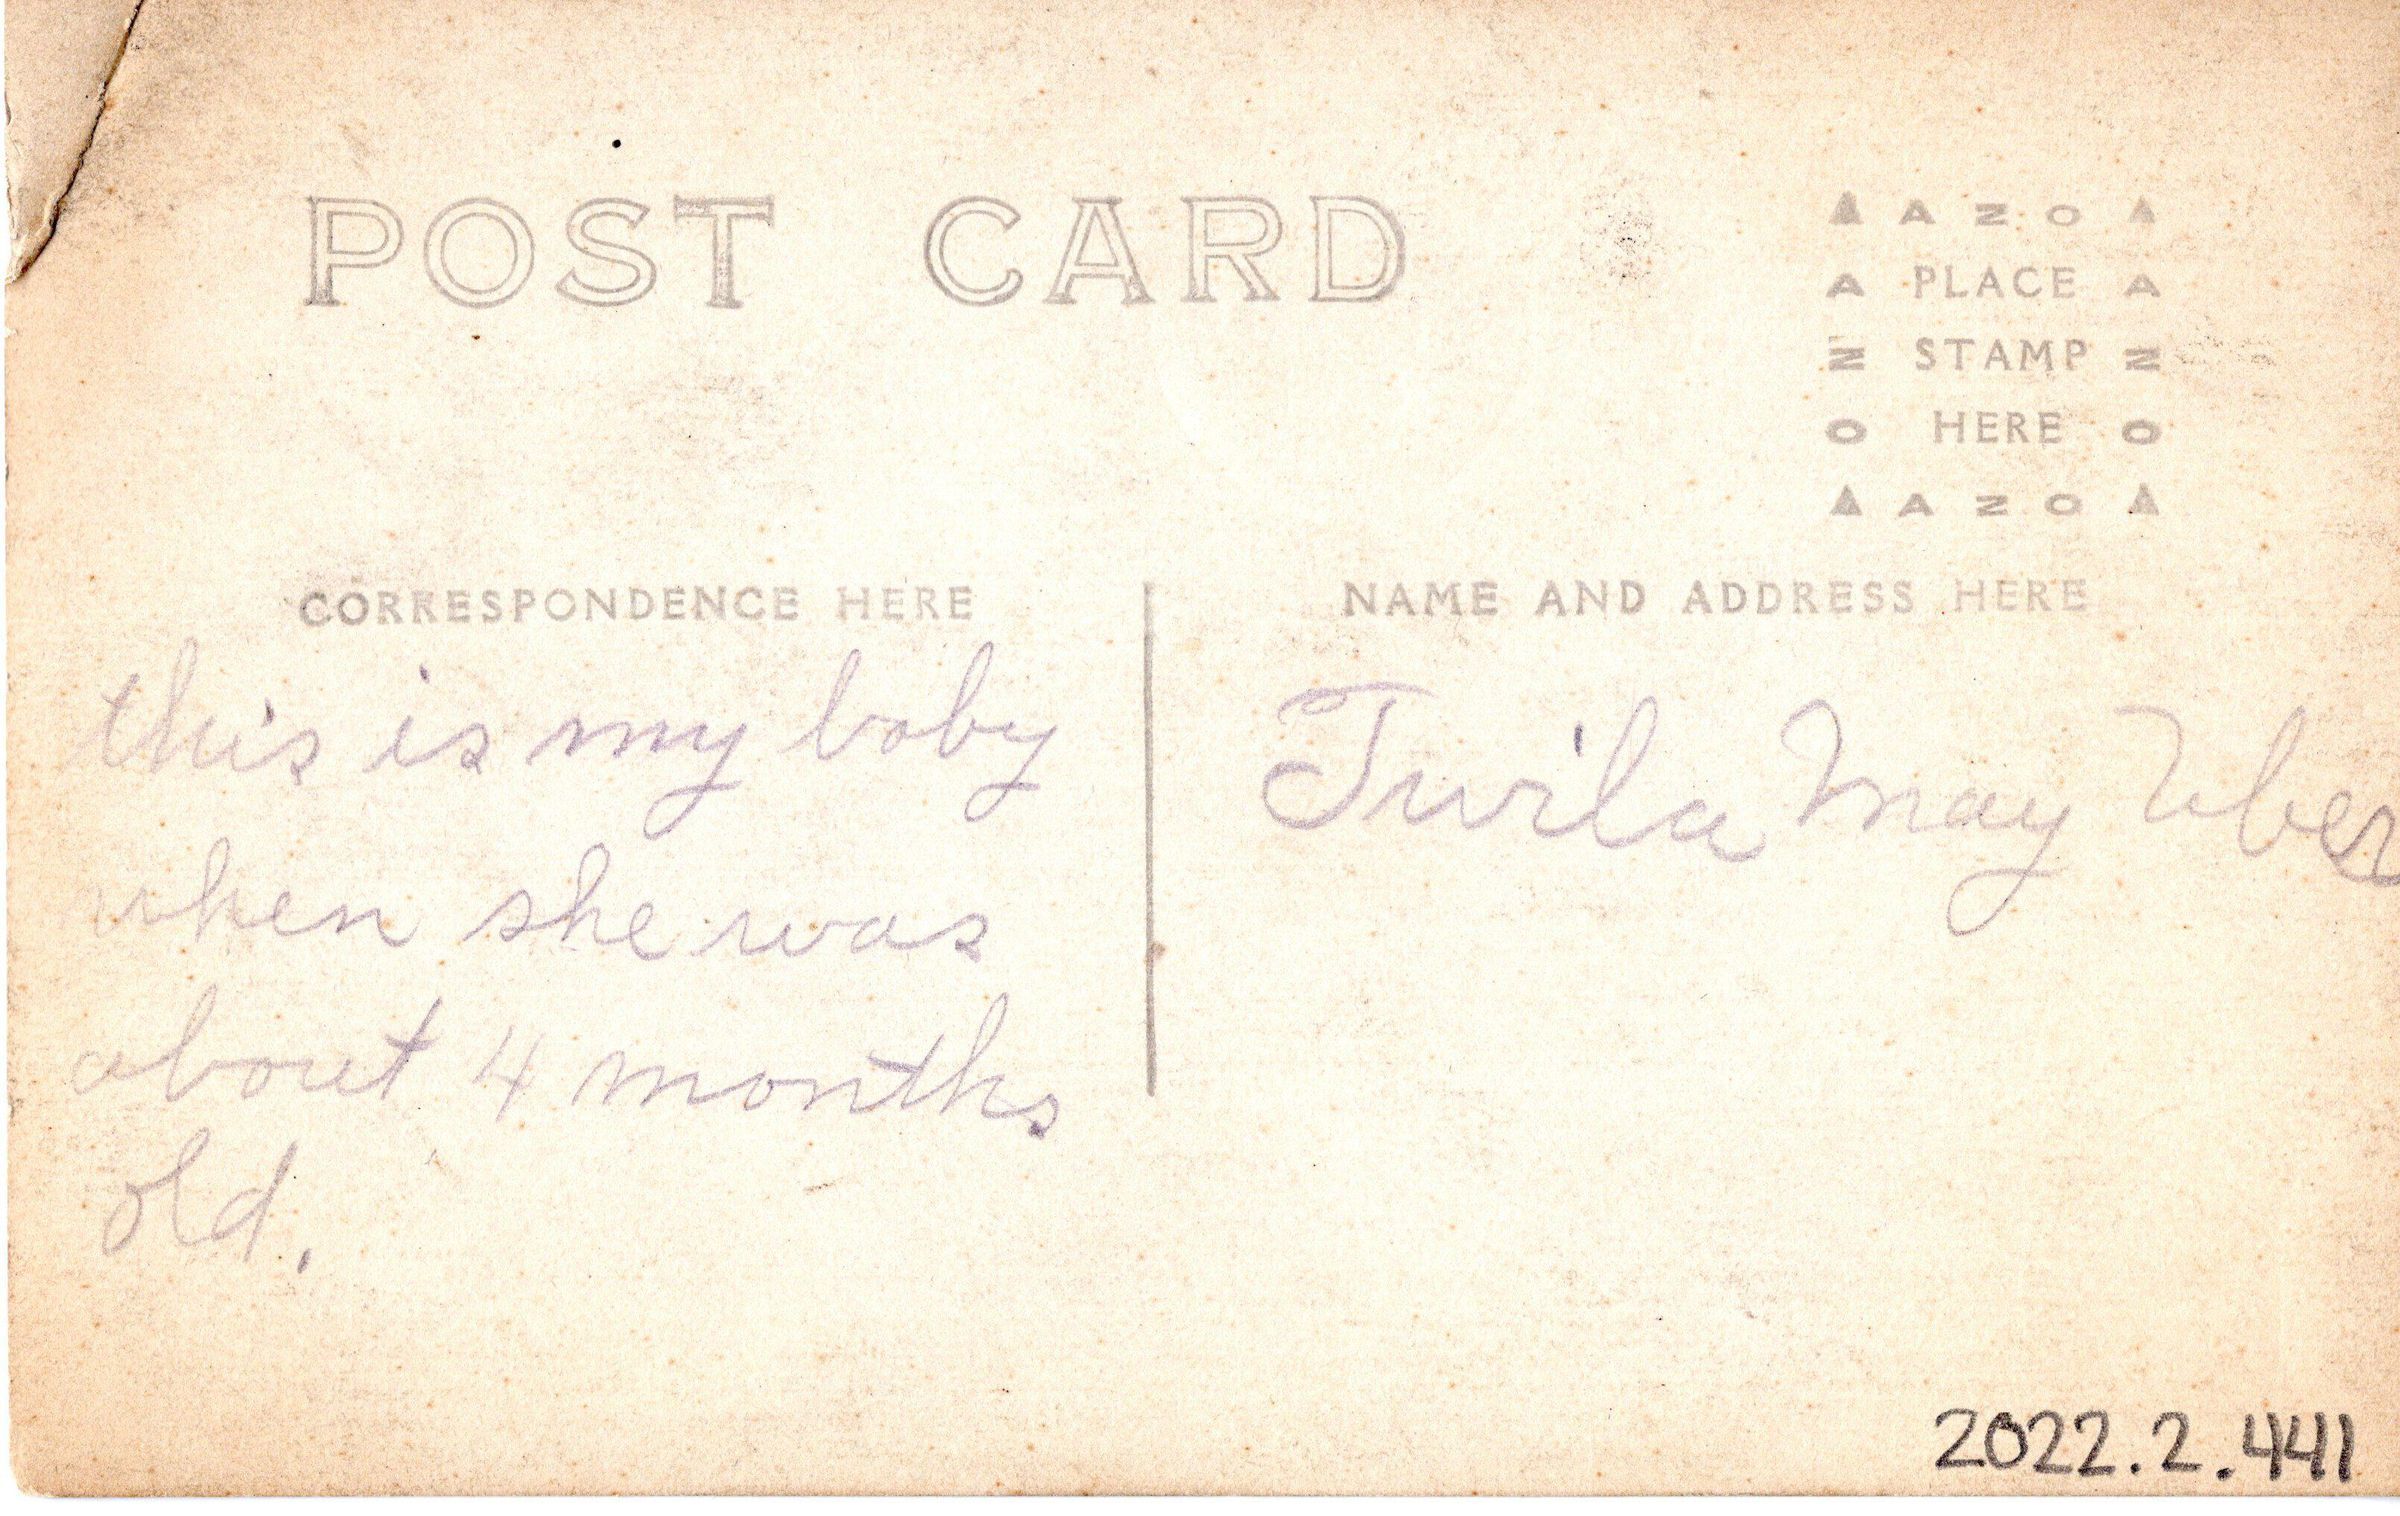 POST CARD
▲ A Z O ▲
A PLACE A
Z STAMP Z
O HERE O
▲ A Z O ▲
CORRESPONDENCE HERE
NAME AND ADDRESS HERE
this is my baby
when she was
about 4 months
old.
Twila May Uber
2022.2.441